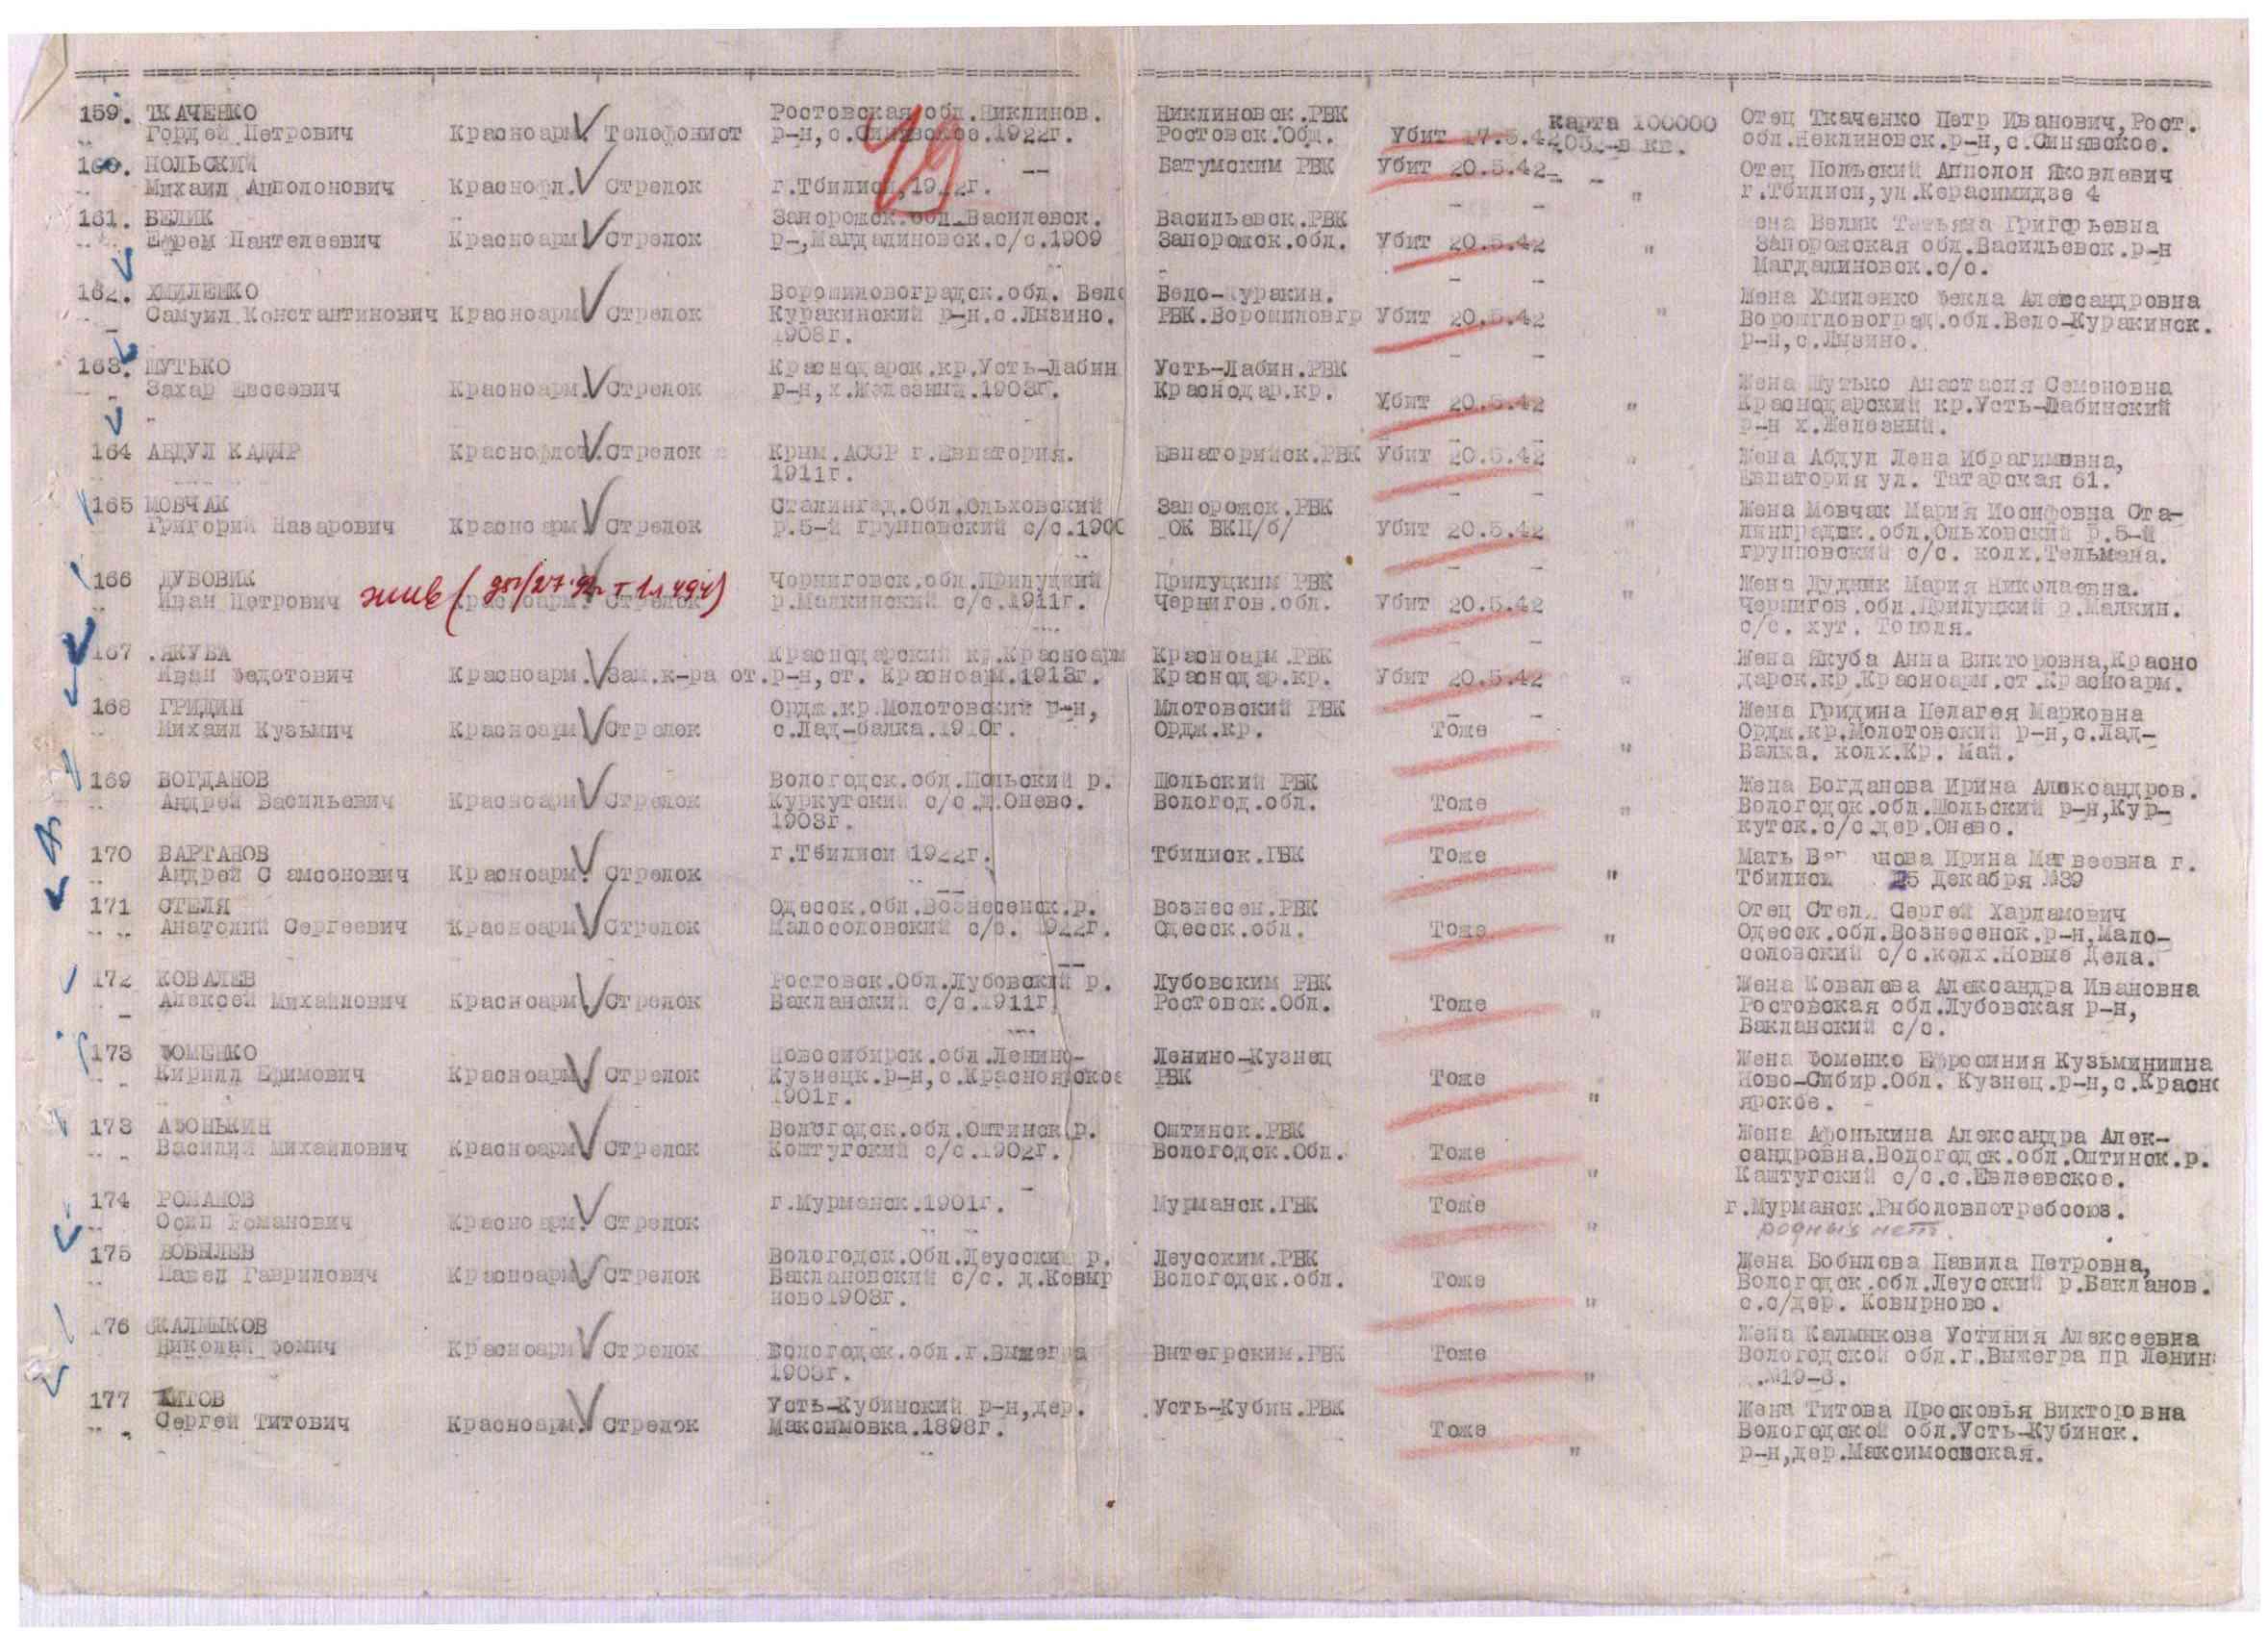 159. ТКАЧЕНКО
Гордей Петрович Красноарм. Телефонист
Ростовская обл.Никлинов.
р-н,с. 1922г.
Никлиновск.РВК
Ростовск.Обл.
Убит 17.5.42
карта 100000
Отец Ткаченко Петр Иванович,Рост.
обл.Неклиновск.р-н,с.Синявское.
49
160. НОЛЬСКИЙ
Михаил Апполонович Краснофл. Стрелок
г.Тбилиси,1922г.
Батумским РВК
Убит 20.5.42
Отец Польский Апполон Яковлевич
г.Тбилиси,ул.Керасимидзе 4
161. БЕЛИК
Пантелеевич Красноарм. Стрелок
Запорожск.обл.Василевск.
р-,Магдалиновск.с/с.1909
Васильевск.РВК
Запорожск.обл.
Убит 20.5.42
ена Белик Татьяна Григорьевна
Запорожская обл.Васильевск.р-н
Магдалиновск.с/с.
162. ХМИЛЕНКО
Самуил Константинович Красноарм. Стрелок
Ворошиловоградск.обл. Бело
Куракинский р-н.с.Лызино.
1908г.
Бело-Куракин.
РВК.Ворошиловгр
Убит 20.5.42
Жена Хмиленко Фекла Александровна
Ворошгловоград.обл.Бело-Куракинск.
р-н,с.Лызино.
163. ШУТЬКО
Захар Евсеевич Красноарм. Стрелок
Краснодарск.кр.Усть-Лабин
р-н,х.Железный.1903г.
Усть-Лабин.РВК
Краснодар.кр.
Убит 20.5.42
Жена Шутько Анастасия Семеновна
Краснодарский кр.Усть-Лабинский
р-н х.Железный.
164 АБДУЛ КАДЫР Краснофлот. Стрелок
Крым.АССР г.Евпатория.
1911г.
Евпаторийск.РВК
Убит 20.5.42
Жена Абдул Лена Ибрагимовна,
Евпатория ул. Татарская 61.
165 МОВЧАК
Григорий Назарович Красноарм. Стрелок
Сталинград.Обл.Ольховский
р.5-й групповский с/с.1900
Запорожск.РВК
ОК ВКП/б/
Убит 20.5.42
Жена Мовчак Мария Иосифовна Ста-
линградск.обл.Ольховский р.5-й
групповский с/с. колх.Тельмана.
166 ДУБОВИК
Иван Петрович Красноарм. Стрелок
жив
Черниговск.обл.Прилуцкий
р.Малкинский с/с.1911г.
Прилуцким РВК
Чернигов.обл.
Убит 20.5.42
Жена Дудник Мария Николаевна.
Чернигов.обл.Прилуцкий р.Малкин.
с/с. хут. Тополя.
167 .ЯКУБА
Иван Федотович Красноарм. Зам.к-ра от.
Краснодарский кр.Красноарм
р-н,ст. Красноарм.1913г.
Красноарм.РВК
Краснодар.кр.
Убит 20.5.42
Жена Якуба Анна Викторовна,Красно
дарск.кр.Красноарм.ст.Красноарм.
168 ГРИДИН
Михаил Кузьмич Красноарм. Стрелок
Ордж.кр.Молотовский р-н,
с.Лад-балка.1910г.
Млотовский РВК
Ордж.кр.
Тоже "
Жена Гридина Пелагея Марковна
Ордж.кр.Молотовский р-н,с.Лад-
Балка. колх.Кр. Май.
169 БОГДАНОВ
Андрей Васильевич Красноарм. Стрелок
Вологодск.обл.Шольский р.
Куркутский с/с.д.Онево.
1903г.
Шольский РВК
Вологод.обл.
Тоже "
Жена Богданова Ирина Александров.
Вологодск.обл.Шольский р-н,Кур-
кутск.с/с.дер.Онево.
170 ВАРТАНОВ
Андрей Самсонович Красноарм. Стрелок
г.Тбилиси 1922г.
Тбилиск.ГВК
Тоже "
Мать Ирина Матвеевна г.
Тбилиси 25 Декабря №39
171 СТЕЛЯ
Анатолий Сергеевич Красноарм. Стрелок
Одесск.обл.Вознесенск.р.
Малосоловский с/с. 1922г.
Вознесен.РВК
Одесск.обл.
Тоже "
Отец Стел Сергей Харламович
Одесск.обл.Вознесенск.р-н,Мало-
соловский с/с.колх.Новые Дела.
172 КОВАЛЕВ
Алексей Михайлович Красноарм. Стрелок
Ростовск.Обл.Лубовский р.
Бакланский с/с.1911г
Лубовским РВК
Ростовск.Обл.
Тоже "
Жена Ковалева Александра Ивановна
Ростовская обл.Лубовская р-н,
Бакланский с/с.
173 ФОМЕНКО
Кирилл Ефимович Красноарм. Стрелок
Новосибирск.обл.Ленино-
Кузнецк.р-н,с.Красноярское
1901г.
Ленино-Кузнец
РВК
Тоже "
Жена Фоменко Ефросиния Кузьминишна
Ново-Сибир.Обл. Кузнец.р-н,с.Красно
ярское.
173 АФОНЬКИН
Василий Михайлович Красноарм. Стрелок
Вологодск.обл.Оштинск.р.
Коштугский с/с.1902г.
Оштинск.РВК
Вологодск.Обл.
Тоже "
Жена Афонькина Александра Алек-
сандровна.Вологодск.обл.Оштинск.р.
Каштугский с/с.с.Евлеевское.
174 РОМАНОВ
Осип Романович Красноарм. Стрелок
г.Мурманск.1901г.
Мурманск.ГВК
Тоже "
г.Мурманск.Рыболовпотребсоюз.
родных нет.
175 БОБЫЛЕВ
Павел Гаврилович Красноарм. Стрелок
Вологодск.Обл.Леусский р.
Баклановский с/с. д.Ковыр
ново1903г.
Леусским.РВК
Вологодск.обл.
Тоже "
Жена Бобылева Павила Петровна,
Вологодск.обл.Леусский р.Бакланов.
с.с/дер. Ковырново.
176 КАЛМЫКОВ
Николай Фомич Красноарм. Стрелок
Вологодск.обл.г.Вытегра
1903г.
Витегрским.РВК
Тоже "
Жена Калмыкова Устиния Алексеевна
Вологодской обл.г.Выжегра пр Ленин
.№19-3.
177 ТИТОВ
Сергей Титович Красноарм. Стрелок
Усть-Кубинский р-н,дер.
Максимовка.1898г.
Усть-Кубин.РВК
Тоже "
Жена Титова Просковья Викторовна
Вологодской обл.Усть-Кубинск.
р-н,дер.Максимосвская.